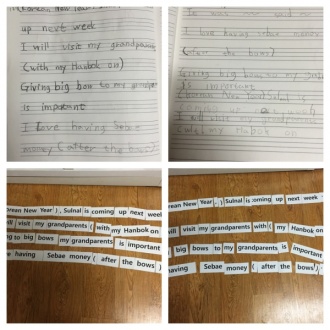 (Korean New Year
up next week
I will visit my grandparents
(with my Hanbok on)
Giving big bow to my grandpar
is important
I love having Sebae
money (after the bows)
I love having
(after the bows)
Giving big bow to my
is important
Korean New Year Sulnal is
I will visit my
(with my Hanbok on
rean New Year ), Sulnal is coming up next week
ll visit my grandparents ( with my Hanbok on
ng to big bows my grandparents is important
e having Sebae money ( after the bows )
ean New Year , ) Sulnal is coming up next week
ill visit my grandparents with ( my Hanbok on
big bows to my grandparents is important
having Sebae money ( after the bows )